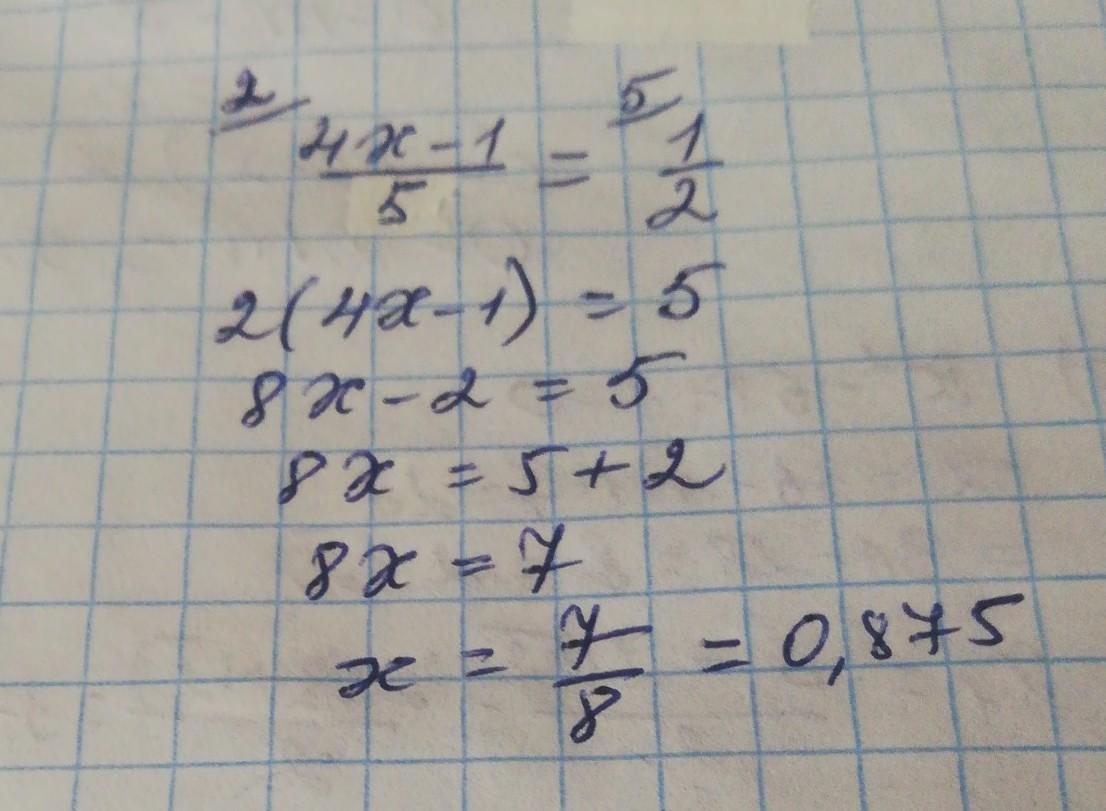 2/ (4x-1)/5 = 5/ 1/2
2(4x-1) = 5
8x-2 = 5
8x = 5+2
8x = 7
x = 7/8 = 0,875